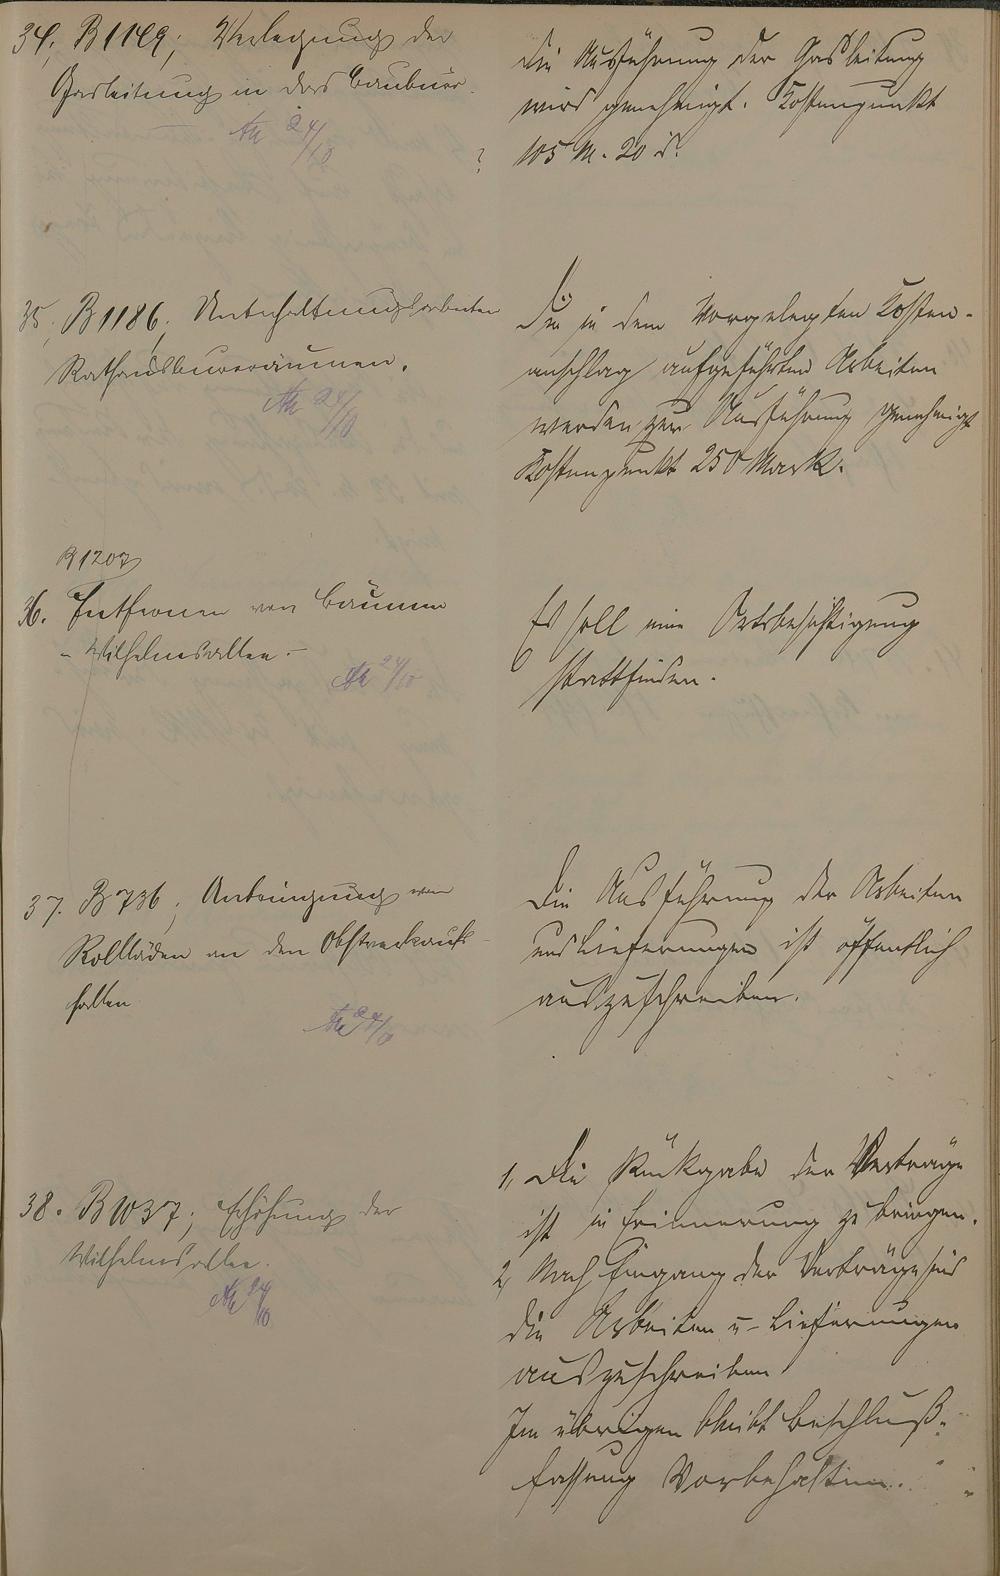 34, B 1149, Verlegung der
Gasleitung in das Baubüro.
24/10
die Ausführung der Gasleitung
wird genehmigt. Kostenpunkt
? 105 M. 20 d.
35, B 1186, Unterhaltungsarbeiten
Rathausbüroräumen.
24/10
Die in dem vorgelegten Kosten-
anschlag aufgeführten Arbeiten
werden zur Ausführung genehmigt
Kostenpunkt 250 Mark.
B 1207
36. Entfernen von Bäumen
- Wilhelmsallee -
24/10
Es soll eine Ortsbesichtigung
stattfinden.
37. B 736, Anbringung von
Rollläden an den Obstverkaufs-
hallen
24/10
Die Ausführung der Arbeiten
und Lieferungen ist öffentlich
auszuschreiben.
38. B 1037, Erhöhung der
Wilhelmsallee.
24/10
1, Die Rückgabe der Verträge
ist in Erinnerung zu bringen.
2, Nach Eingang der Verträge sind
die Arbeiten u- Lieferungen
auszuschreiben
Im übrigen bleibt Beschluß-
fassung vorbehalten.